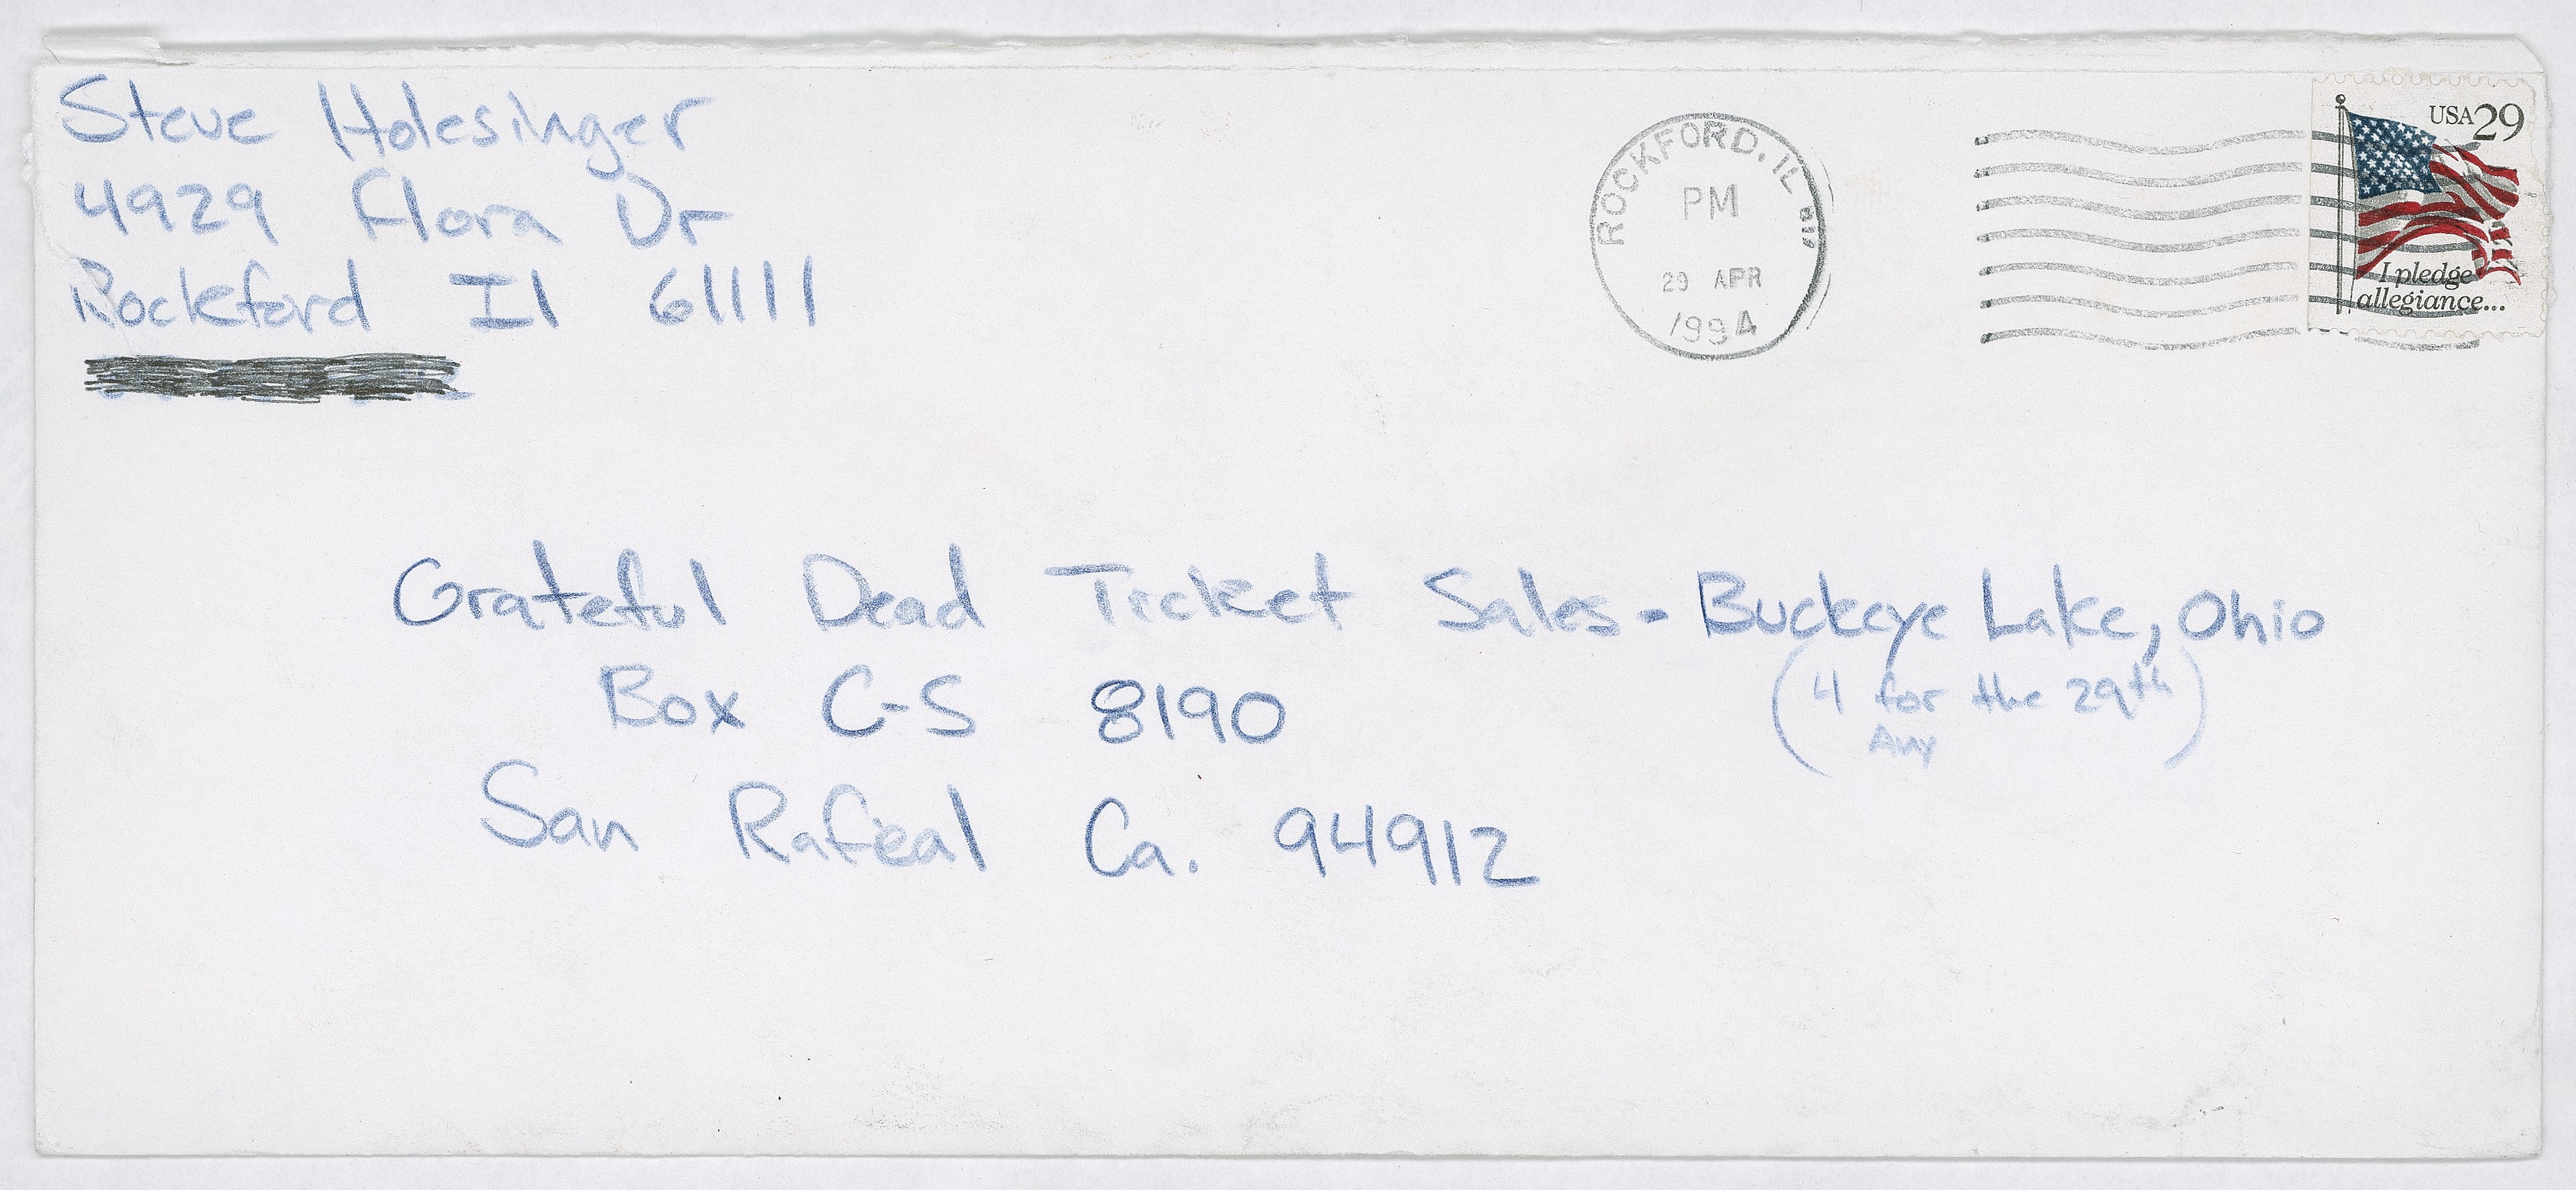 Steve Holesinger
4929 Flora Dr
Rockford Il 61111
ROCKFORD, IL
PM
29 APR
1994
USA 29
I pledge
allegiance...
Grateful Dead Ticket Sales - Buckeye Lake, Ohio
(4 for the 29th)
Any
Box C-S 8190
San Rafeal Ca. 94912